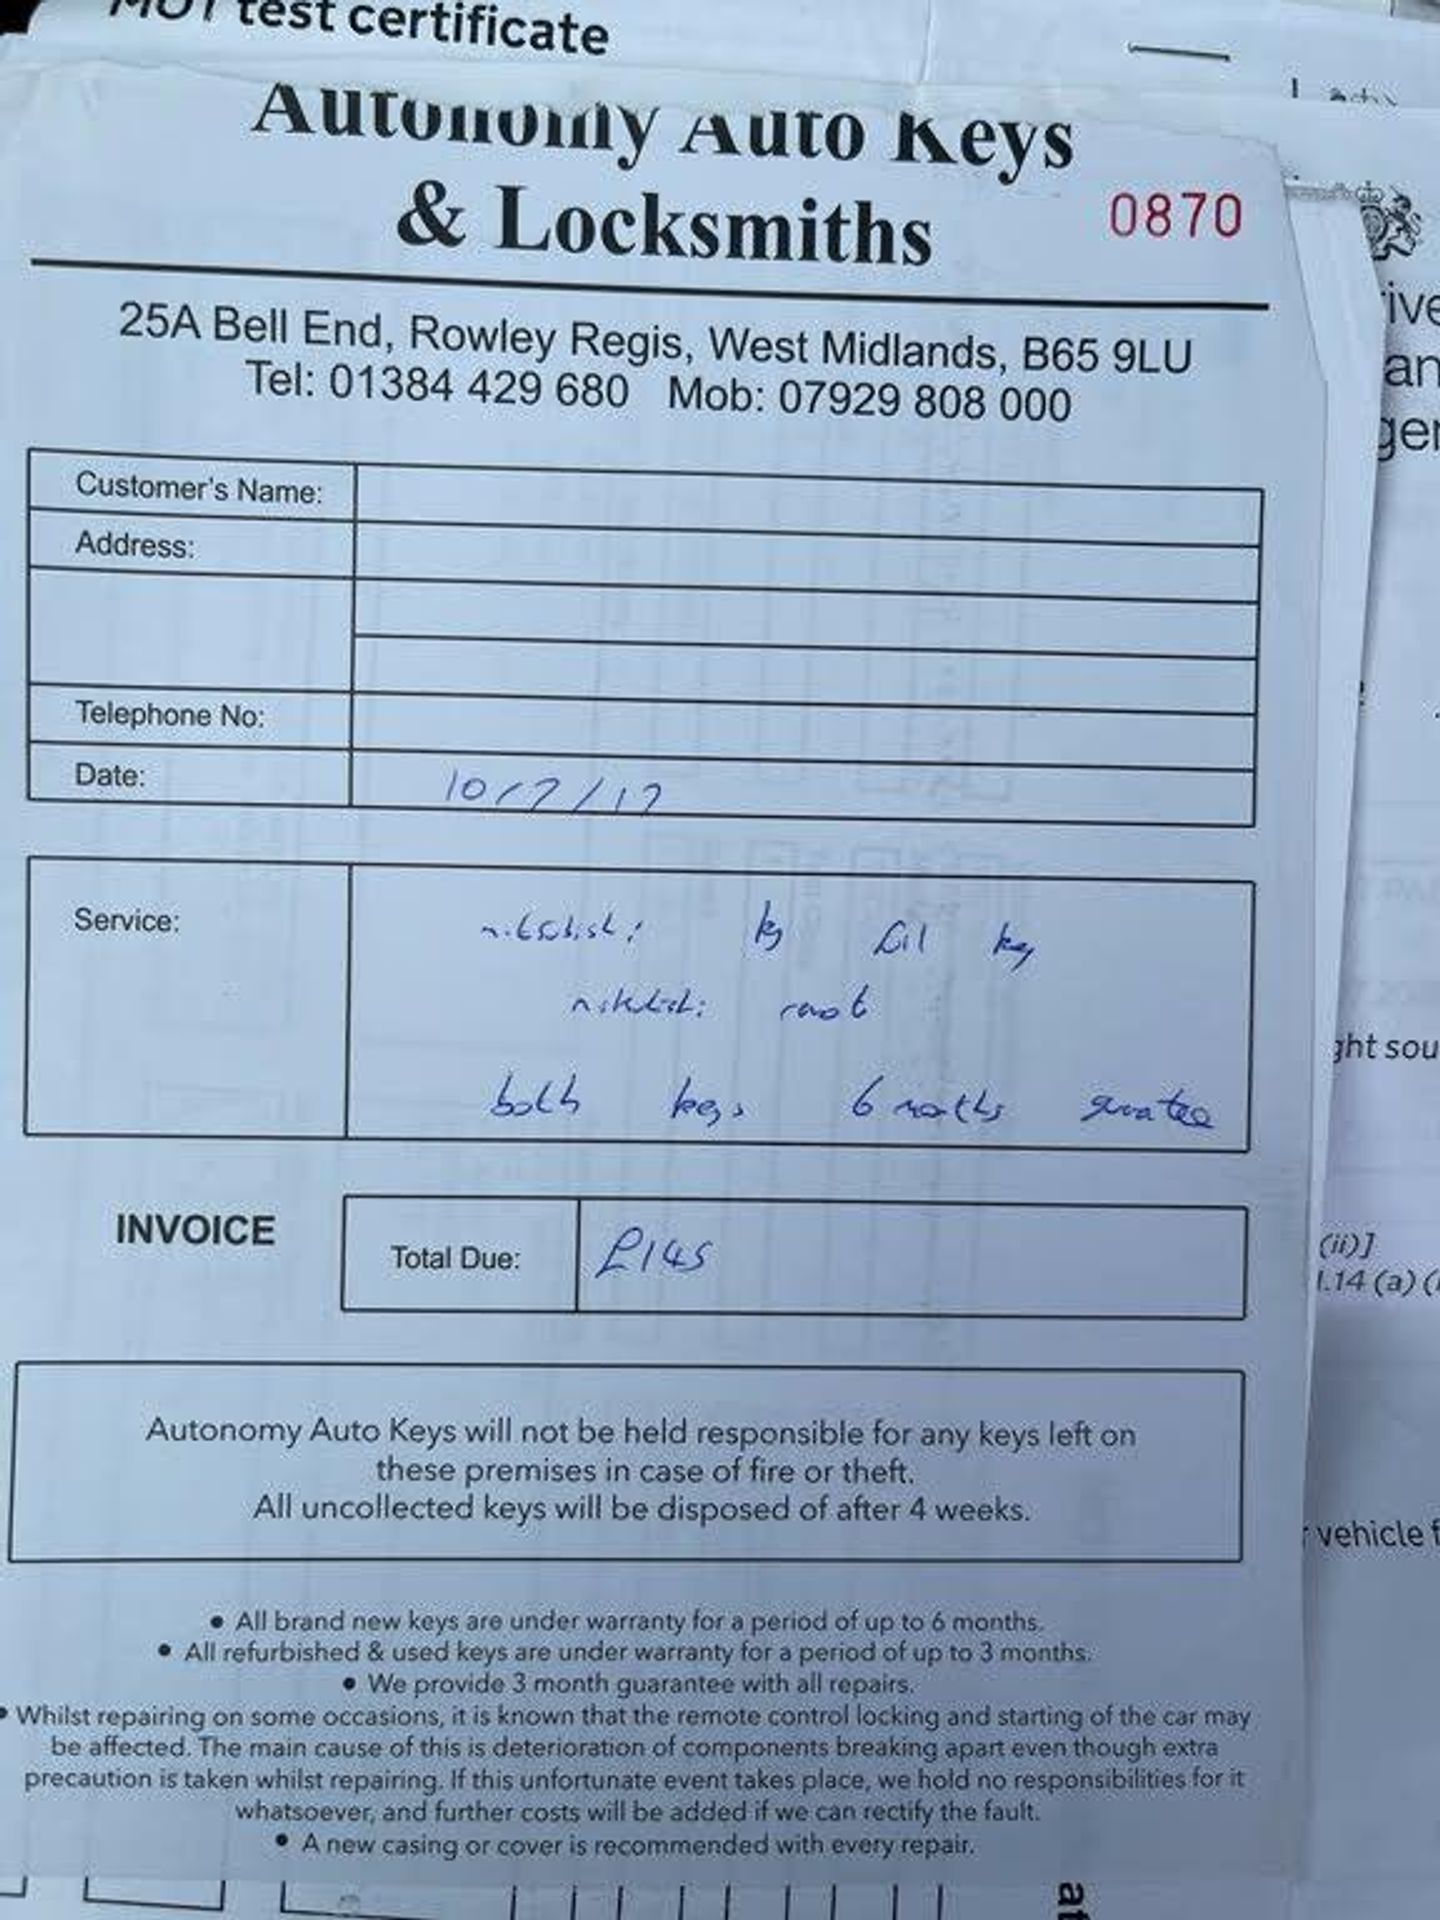 MOT test certificate
Autonomy Auto Keys
& Locksmiths
0870
25A Bell End, Rowley Regis, West Midlands, B65 9LU
Tel: 01384 429 680 Mob: 07929 808 000
Customer's Name:
Address:
Telephone No:
Date: 10/7/17
Service:
mitsubishi key
key
mitsubishi
both keys 6 months
INVOICE
Total Due: £145
Autonomy Auto Keys will not be held responsible for any keys left on
these premises in case of fire or theft.
All uncollected keys will be disposed of after 4 weeks.
• All brand new keys are under warranty for a period of up to 6 months.
• All refurbished & used keys are under warranty for a period of up to 3 months.
• We provide 3 month guarantee with all repairs.
• Whilst repairing on some occasions, it is known that the remote control locking and starting of the car may
be affected. The main cause of this is deterioration of components breaking apart even though extra
precaution is taken whilst repairing. If this unfortunate event takes place, we hold no responsibilities for it
whatsoever, and further costs will be added if we can rectify the fault.
• A new casing or cover is recommended with every repair.
ive
an
ger
ght sou
(ii)]
1.14 (a) (
vehicle f
at